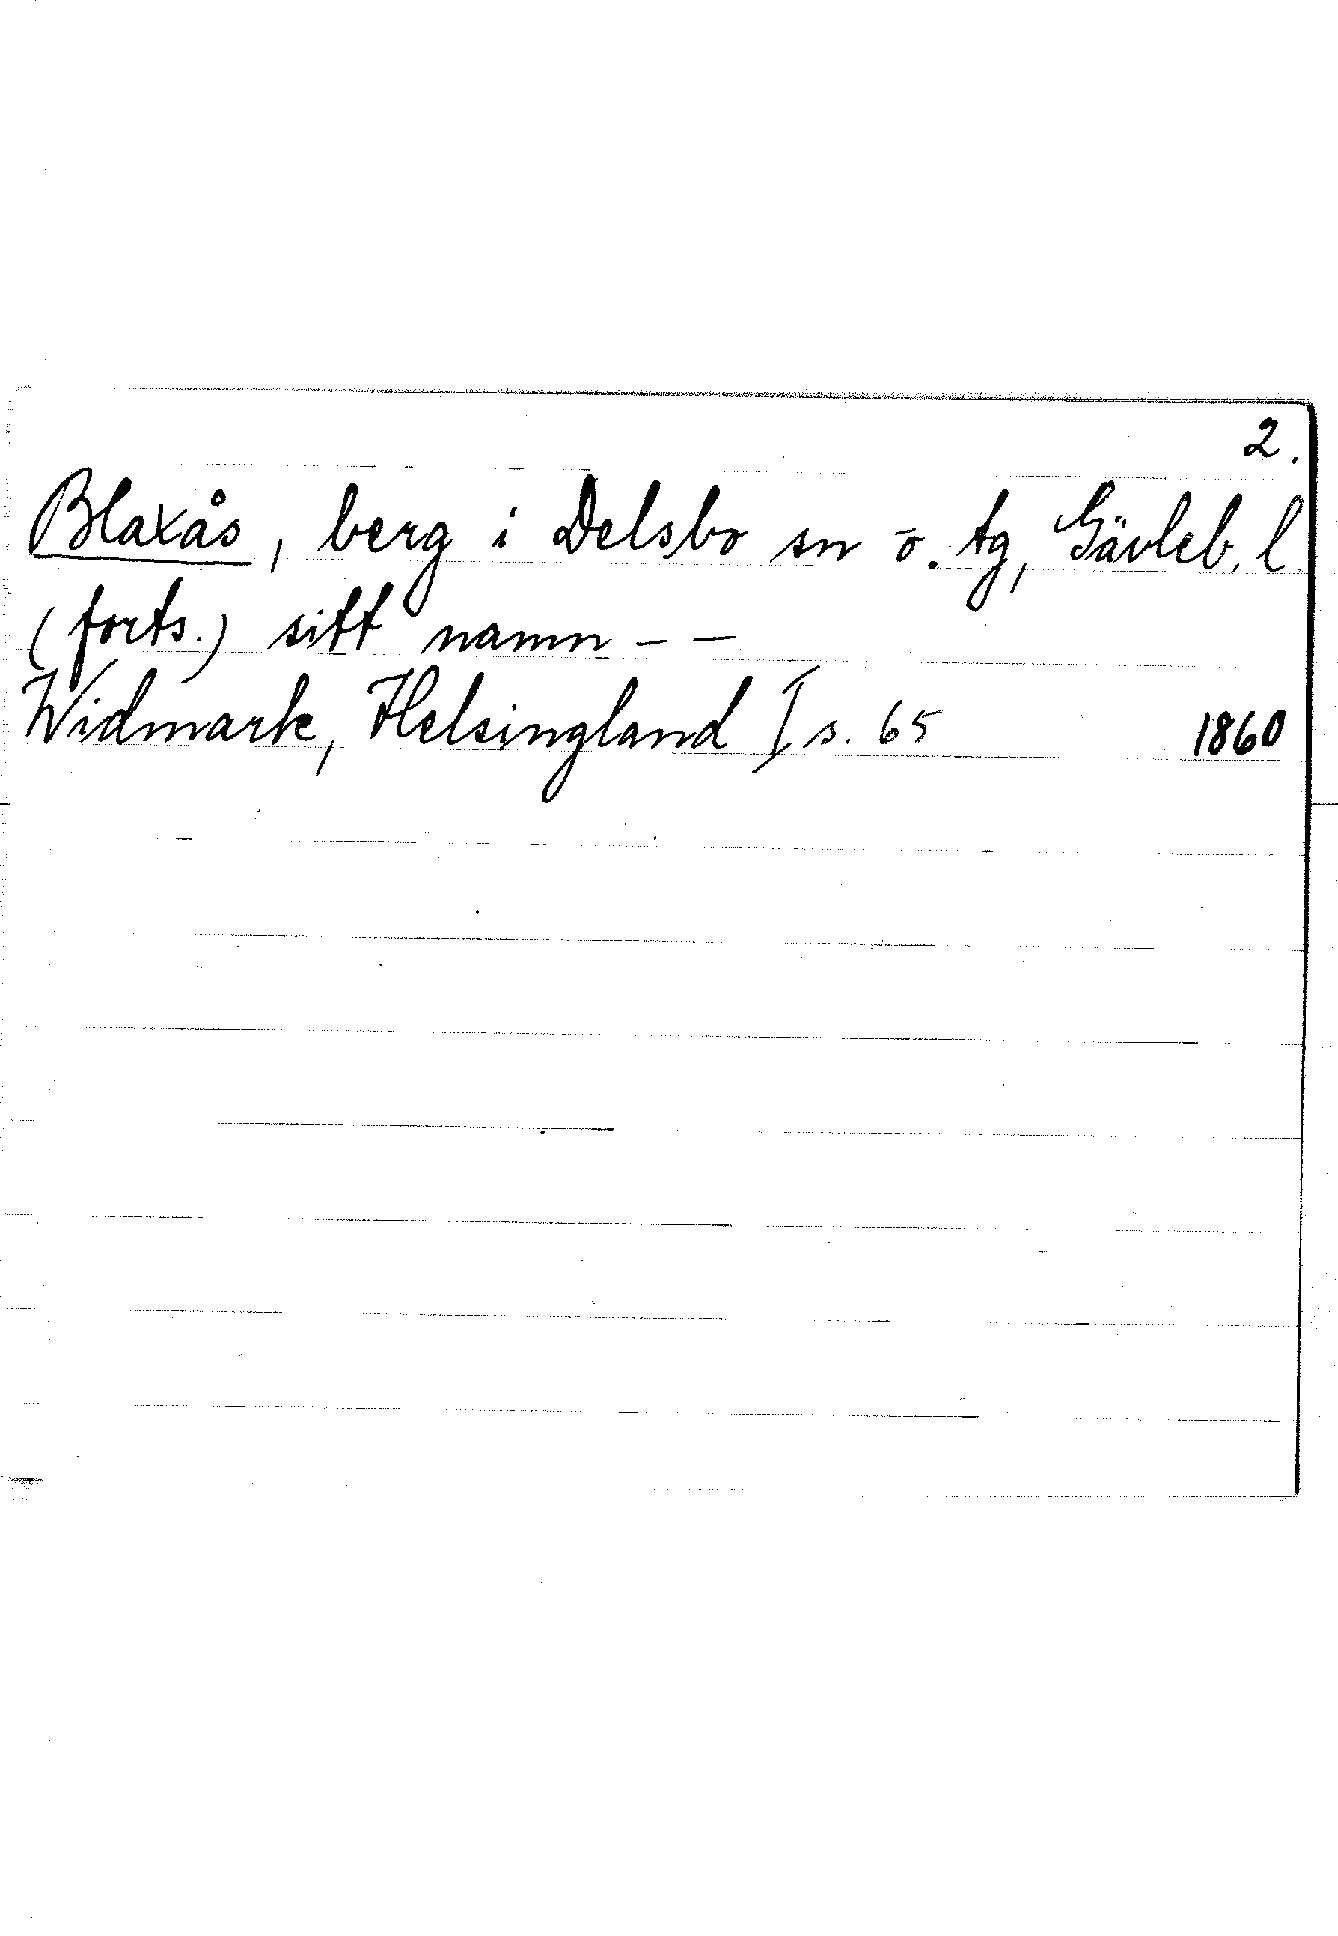 2.
Blaxås, berg i Delsbo sn o. tg, Gävleb. l.
(forts.) sitt namn – –
Widmark, Helsingland I s. 65 1860